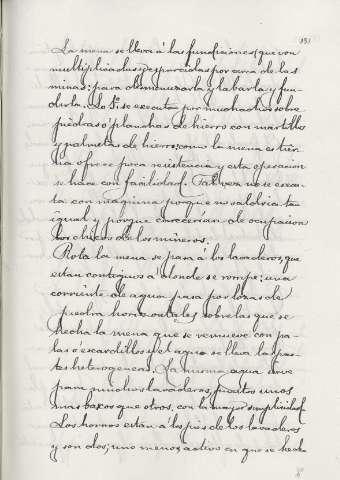 151
La mena se lleva á las fundiciones (que son
multiplicadas y esparcidas por cerca de las
minas; para desmenuzarla y labarla y fun-
dirla. Lo 1º se executa por muchachos sobre
piedras ó planchas de hierro con martillos
y palmetas de hierro; como la mena es tier
na ofrece poca resistencia y esta operacion
se hace con facilidad. Tal vez no se execu
ta con máquina porque no saldria tan
igual y porque carecerian de ocupacion
los chicos de los mineros.
Rota la mena se pasa á los lavaderos, que
estan contiguos á donde se rompe: una
corriente de agua pasa por lozas de
piedra horizontales sobre las que se
hecha la mena que se remueve con pa-
las ó escardillos y el agua se lleva las par-
tes heterogeneas. La misma agua sirve
para muchos lavaderos puestos unos
mas baxos que otros, con la mayor simplicidad.
Los hornos están á los pies de los lavaderos
y son dos; uno menos activo en que se hecha